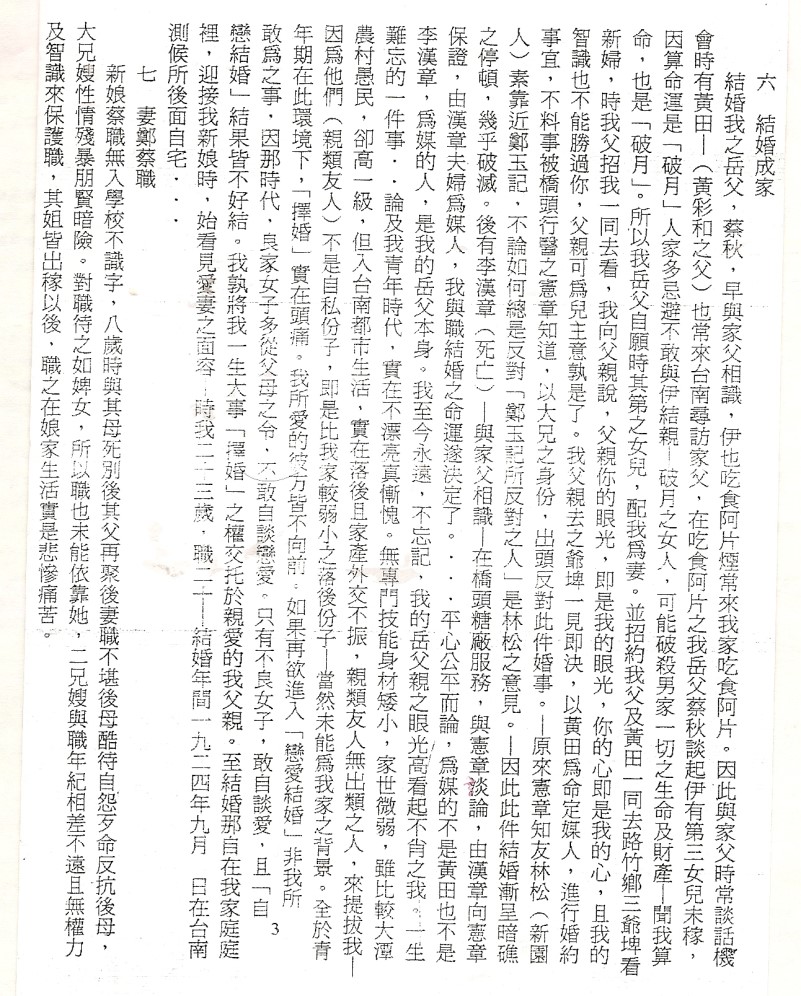 六　結婚成家
結婚我之岳父，蔡秋，早與家父相識，伊也吃食阿片煙常來我家吃食阿片。因此與家父時常談話機
會時有黃田—（黃彩和之父）也常來台南尋訪家父，在吃食阿片之我岳父蔡秋談起伊有第三女兒未稼，
因算命運是「破月」人家多忌避不敢與伊結親—破月之女人，可能破殺男家一切之生命及財產—聞我算
命，也是「破月」。所以我岳父自願時其第之女兒，配我為妻。並招約我父及黃田一同去路竹鄉三爺埤看
新婦，時我父招我一同去看，我向父親說，父親你的眼光，即是我的眼光，你的心即是我的心，且我的
智識也不能勝過你，父親可為兒主意孰是了。我父親去之爺埤一見即決，以黃田為命定媒人，進行婚約
事宜，不料事被橋頭行醫之憲章知道，以大兄之身份，出頭反對此件婚事。—原來憲章知友林松（新園
人）素靠近鄭玉記，不論如何總是反對「鄭玉記所反對之人」是林松之意見。—因此此件結婚漸呈暗礁
之停頓，幾乎破滅。後有李漢章（死亡）—與家父相識—在橋頭糖廠服務，與憲章談論，由漢章向憲章
保證，由漢章夫婦為媒人，我與職結婚之命運遂決定了。...平心公平而論，為媒的不是黃田也不是
李漢章，為媒的人，是我的岳父本身。我至今永遠，不忘記，我的岳父親之眼光高看起不肖之我。一生
難忘的一件事..論及我青年時代，實在不漂亮真慚愧。無專門技能身材矮小，家世微弱，雖比較大潭
農村愚民，卻高一級，但入台南都市生活，實在落後且家產外交不振，親類友人無出類之人，來提拔我—
因為他們（親類友人）不是自私份子，即是比我家較弱小之落後份子—當然未能為我家之背景。全於青
年期在此環境下，「擇婚」實在頭痛。我所愛的彼方皆不向前。如果再欲進入「戀愛結婚」非我所
敢為之事，因那時代，良家女子多從父母之令，不敢自談戀愛。只有不良女子，敢自談愛，且「自
戀結婚」結果皆不好結。我孰將我一生大事「擇婚」之權交托於親愛的我父親。至結婚那自在我家庭庭
裡，迎接我新娘時，始看見愛妻之面容—時我二十三歲，職二十—結婚年間一九二四年九月　日在台南
測候所後面自宅...
七　妻鄭蔡職
新娘蔡職無入學校不識字，八歲時與其母死別後其父再聚後妻職不堪後母酷待自怨歹命反抗後母，
大兄嫂性情殘暴朋賢暗險。對職待之如婢女，所以職也未能依靠她，二兄嫂與職年紀相差不遠且無權力
及智識來保護職，其姐皆出稼以後，職之在娘家生活實是悲慘痛苦。
3